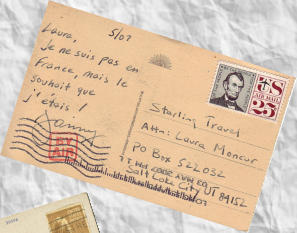 Laura,
5/07
Je ne suis pas en
France, mais le
souhait que
j'étais !
BY
AIR
US
AIR MAIL
25
Starling Travel
Attn: Laura Moncur
PO Box 522032
Salt Lake City UT 84152